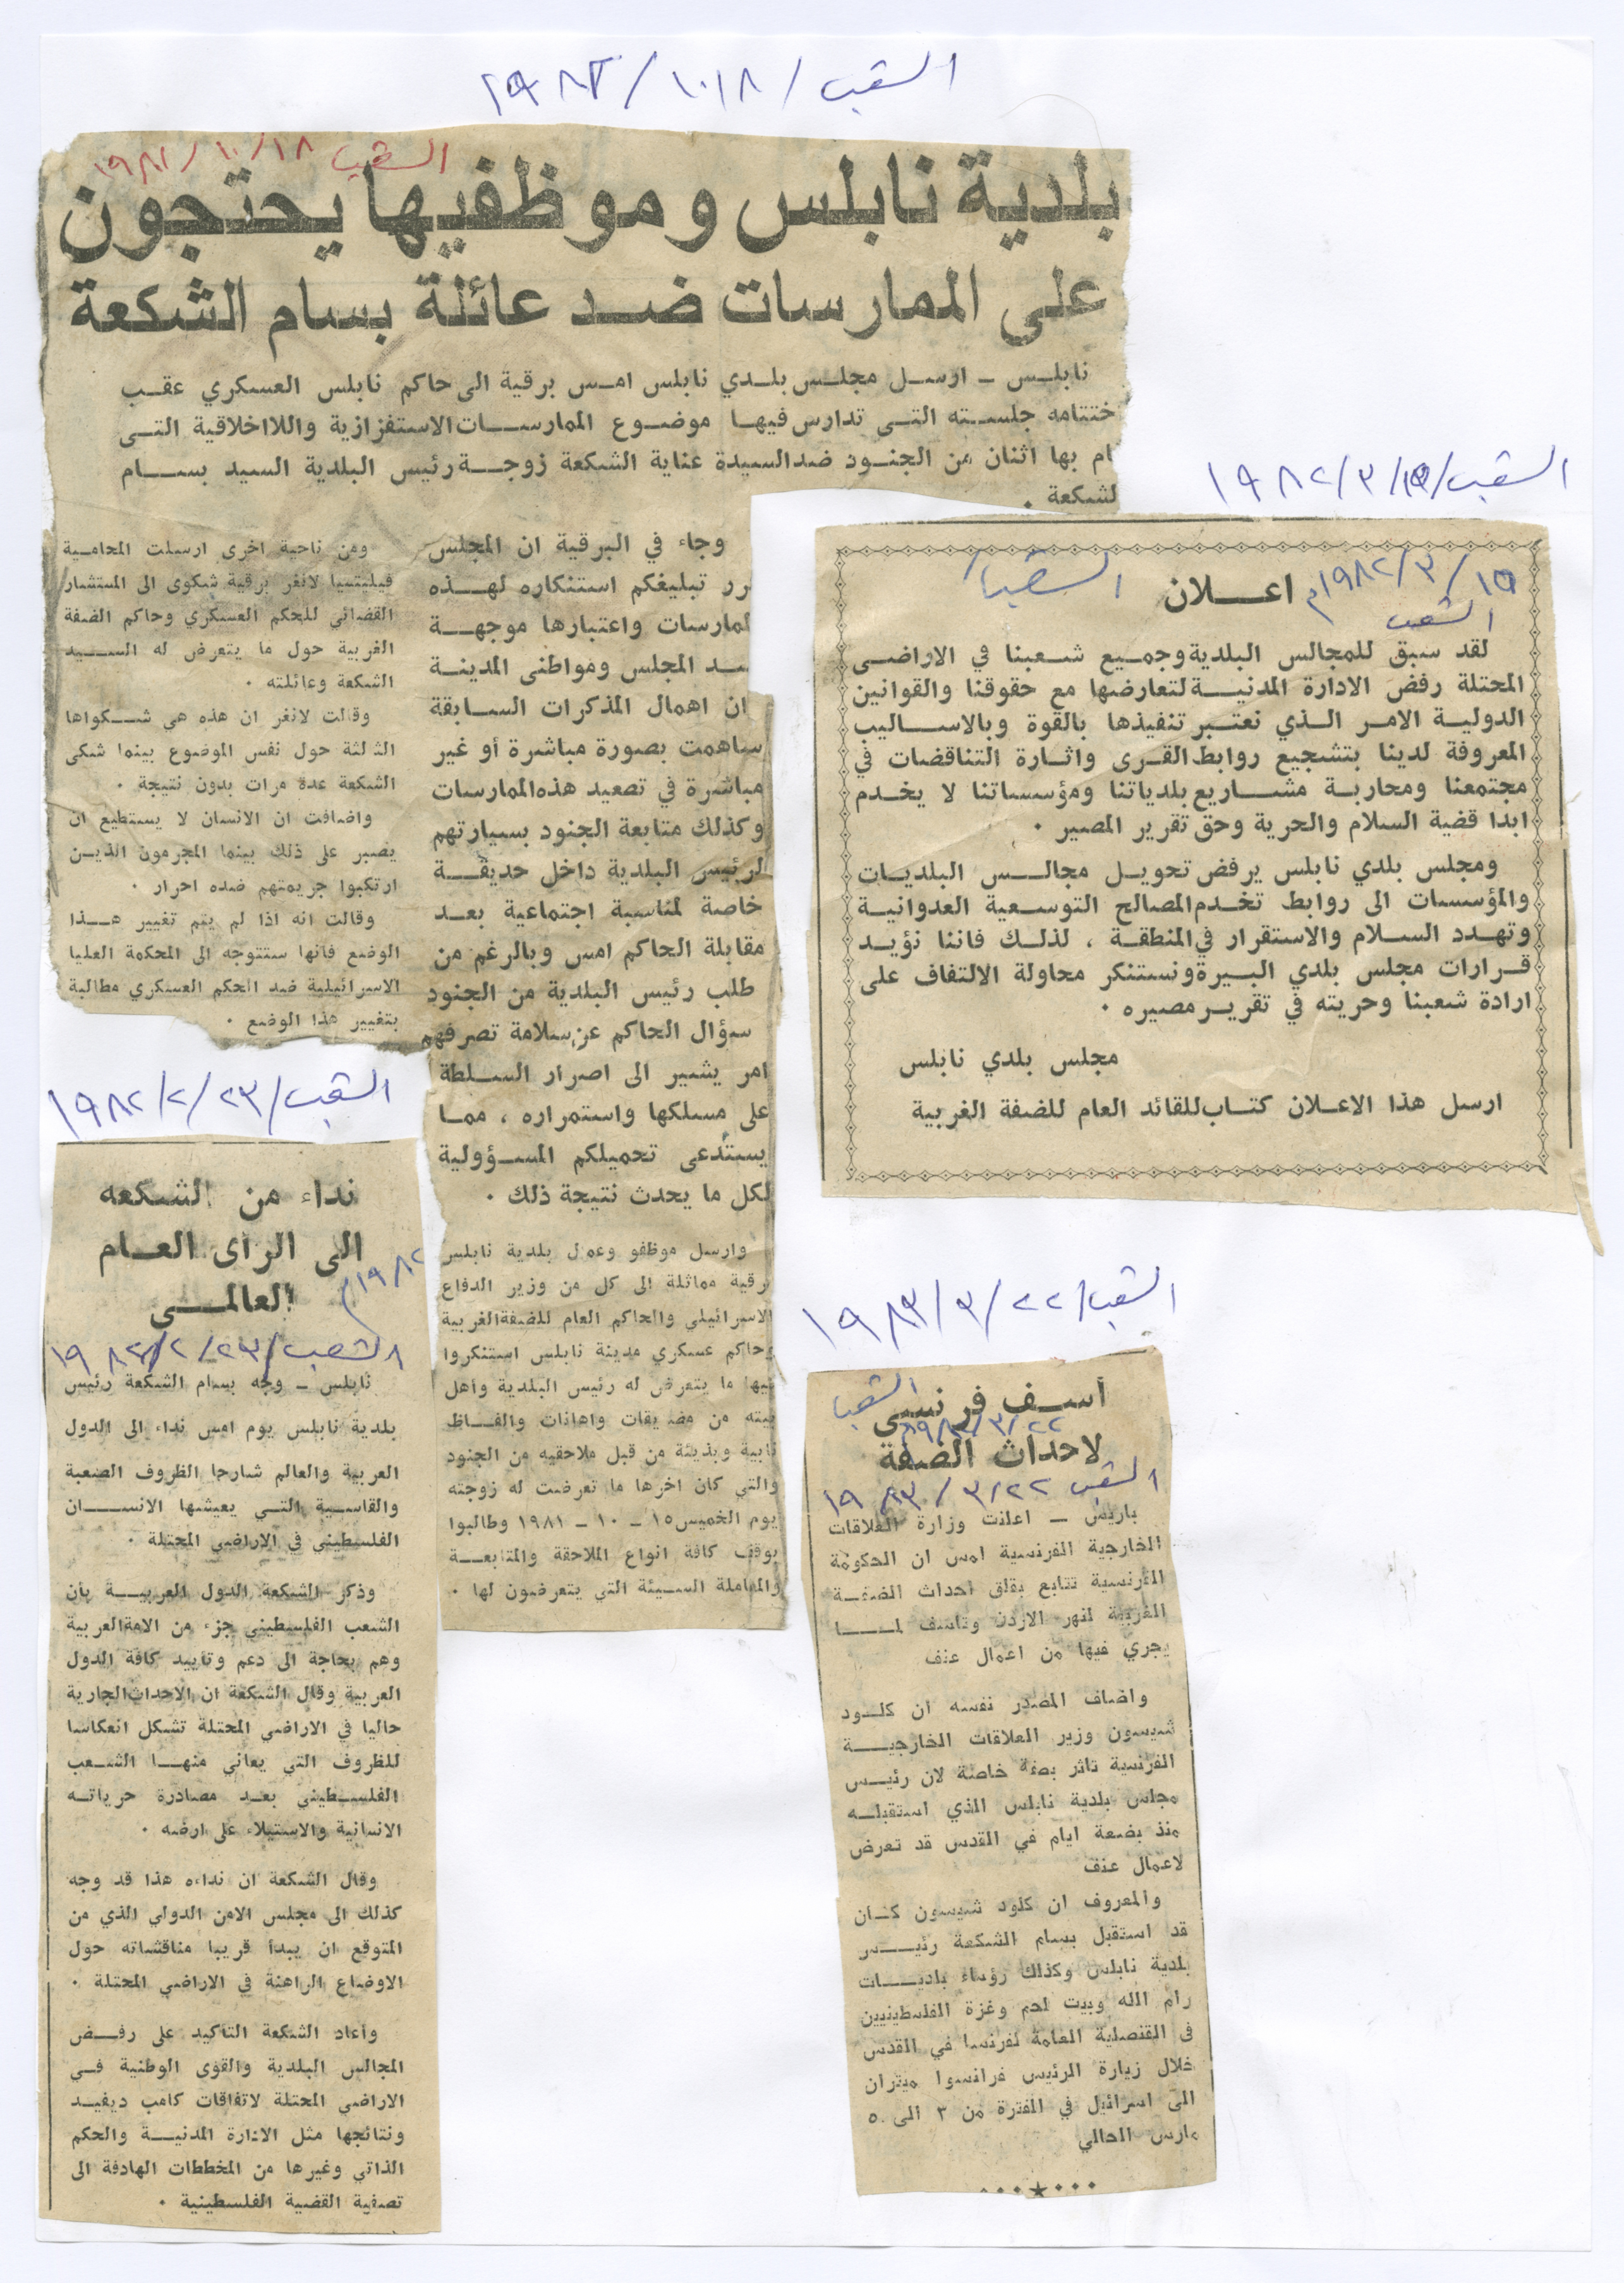 الشعب / ١٩٨٢/١٠/٨
الشعب ١٩٨١/١٠/١٨
بلدية نابلس وموظفيها يحتجون
على الممارسات ضد عائلة بسام الشكعة
نابلس - ارسل مجلس بلدي نابلس امس برقية الى حاكم نابلس العسكري عقب
ختتامه جلسته التي تدارس فيها موضوع الممارسات الاستفزازية واللااخلاقية التي
ام بها اثنان من الجنود ضد السيدة عناية الشكعة زوجة رئيس البلدية السيد بسام
لشكعة .
وجاء في البرقية ان المجلس
رر تبليغكم استنكاره لهذه
لممارسات واعتبارها موجهة
ـد المجلس ومواطني المدينة
ان اهمال المذكرات السابقة
ساهمت بصورة مباشرة أو غير
مباشرة في تصعيد هذه الممارسات
وكذلك متابعة الجنود بسيارتهم
لرئيس البلدية داخل حديقة
خاصة لمناسبة اجتماعية بعد
مقابلة الحاكم امس وبالرغم من
طلب رئيس البلدية من الجنود
سؤال الحاكم عن سلامة تصرفهم
امر يشير الى اصرار السلطة
على مسلكها واستمراره ، مما
يستدعى تحميلكم المسؤولية
لكل ما يحدث نتيجة ذلك .
وارسل موظفو وعمال بلدية نابلس
رقية مماثلة الى كل من وزير الدفاع
الاسرائيلي والحاكم العام للضفة الغربية
وحاكم عسكري مدينة نابلس استنكروا
فيها ما يتعرض له رئيس البلدية واهل
بيته من مضايقات واهانات والفاظ
نابية وبذيئة من قبل ملاحقيه من الجنود
والتي كان اخرها ما تعرضت له زوجته
يوم الخميس ١٥ - ١٠ - ١٩٨١ وطالبوا
بوقف كافة انواع الملاحقة والمتابعة
والمعاملة السيئة التي يتعرضون لها .
ومن ناحية اخرى ارسلت المحامية
فيليتسيا لانغر برقية شكوى الى المستشار
القضائي للحكم العسكري وحاكم الضفة
الغربية حول ما يتعرض له السيد
الشكعة وعائلته .
وقالت لانغر ان هذه هي شكواها
الثالثة حول نفس الموضوع بينما شكى
الشكعة عدة مرات بدون نتيجة .
واضافت ان الانسان لا يستطيع ان
يصبر على ذلك بينما المجرمون الذين
ارتكبوا جريمتهم ضده احرار .
وقالت انه اذا لم يتم تغيير هذا
الوضع فانها ستتوجه الى المحكمة العليا
الاسرائيلية ضد الحكم العسكري مطالبة
بتغيير هذا الوضع .
الشعب / ١٩٨٢/٣/١٥
١٩٨٢/٣/١٥م
الشعب
الشعب
اعلان
لقد سبق للمجالس البلدية وجميع شعبنا في الاراضي
المحتلة رفض الادارة المدنية لتعارضها مع حقوقنا والقوانين
الدولية الامر الذي نعتبر تنفيذها بالقوة وبالاساليب
المعروفة لدينا بتشجيع روابط القرى واثارة التناقضات في
مجتمعنا ومحاربة مشاريع بلدياتنا ومؤسساتنا لا يخدم
ابدا قضية السلام والحرية وحق تقرير المصير .
ومجلس بلدي نابلس يرفض تحويل مجالس البلديات
والمؤسسات الى روابط تخدم المصالح التوسعية العدوانية
وتهدد السلام والاستقرار في المنطقة ، لذلك فاننا نؤيد
قرارات مجلس بلدي البيرة ونستنكر محاولة الالتفاف على
ارادة شعبنا وحريته في تقرير مصيره .
مجلس بلدي نابلس
ارسل هذا الاعلان كتاب للقائد العام للضفة الغربية
الشعب / ١٩٨٢/٢/٢٣
نداء من الشكعه
الى الرأى العام
العالمي
١٩٨٢م
الشعب / ١٩٨٢/٢/٢٣
نابلس - وجه بسام الشكعة رئيس
بلدية نابلس يوم امس نداء الى الدول
العربية والعالم شارحا الظروف الصعبة
والقاسية التي يعيشها الانسان
الفلسطيني في الاراضي المحتلة .
وذكر الشكعة الدول العربية بأن
الشعب الفلسطيني جزء من الامة العربية
وهم بحاجة الى دعم وتأييد كافة الدول
العربية وقال الشكعة ان الاحداث الجارية
حاليا في الاراضي المحتلة تشكل انعكاسا
للظروف التي يعاني منها الشعب
الفلسطيني بعد مصادرة حرياته
الانسانية والاستيلاء على ارضه .
وقال الشكعة ان نداءه هذا قد وجه
كذلك الى مجلس الامن الدولي الذي من
المتوقع ان يبدأ قريبا مناقشاته حول
الاوضاع الراهنة في الاراضي المحتلة .
وأعاد الشكعة التأكيد على رفض
المجالس البلدية والقوى الوطنية في
الاراضي المحتلة لاتفاقات كامب ديفيد
ونتائجها مثل الادارة المدنية والحكم
الذاتي وغيرها من المخططات الهادفة الى
تصفية القضية الفلسطينية .
الشعب / ١٩٨٣/٣/٢٢
أسف فرنسي
الشعب
٢٢/٣/
لاحداث الضفة
الشعب ١٩٨٣/٣/٢٢
باريس - اعلنت وزارة العلاقات
الخارجية الفرنسية امس ان الحكومة
الفرنسية تتابع بقلق احداث الضفة
الغربية لنهر الاردن وتأسف لما
يجري فيها من اعمال عنف
واضاف المصدر نفسه ان كلود
شيسون وزير العلاقات الخارجية
الفرنسية تاثر بصفة خاصة لان رئيس
مجلس بلدية نابلس الذي استقبله
منذ بضعة ايام في القدس قد تعرض
لاعمال عنف
والمعروف ان كلود شيسون كان
قد استقبل بسام الشكعة رئيس
بلدية نابلس وكذلك رؤساء بلديات
رام الله وبيت لحم وغزة الفلسطينيين
في القنصلية العامة لفرنسا في القدس
خلال زيارة الرئيس فرانسوا ميتران
الى اسرائيل في الفترة من ٣ الى ٥
مارس الحالي